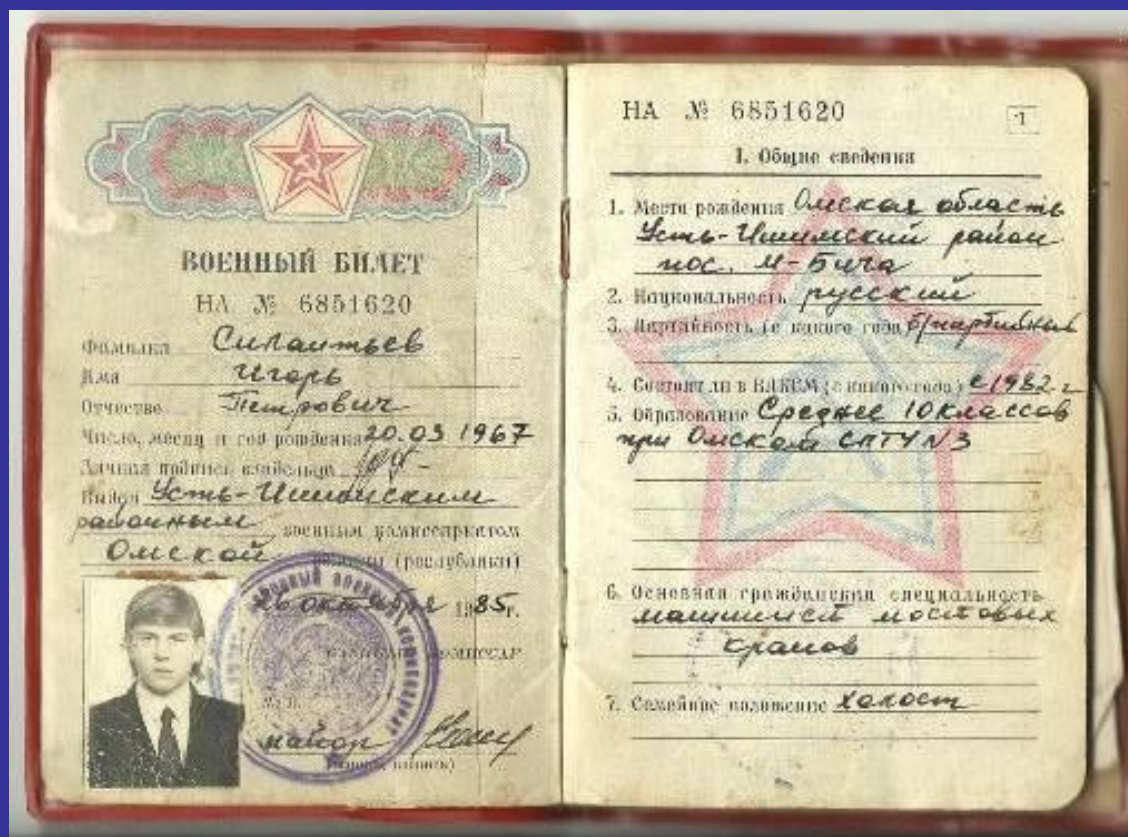 ВОЕННЫЙ БИЛЕТ
НА № 6851620
Фамилия Силантьев
Имя Игорь
Отчество Петрович
Число, месяц и год рождения 20.03 1967
Личная подпись владельца
Выдан Усть-Ишимским
районным военным комиссариатом
Омской области (республики)
26 октября 1985 г.
ВОЕННЫЙ КОМИССАР
майор
НА № 6851620
1
I. Общие сведения
1. Место рождения Омская область
Усть-Ишимский район
пос. М-Бича
2. Национальность русский
3. Партийность (с какого года) б/партийный
4. Состоит ли в ВЛКСМ (с какого года) с 1982 г
5. Образование Среднее 10 классов
при Омском СПТУ N3
6. Основная гражданская специальность
машинист мостовых
кранов
7. Семейное положение холост